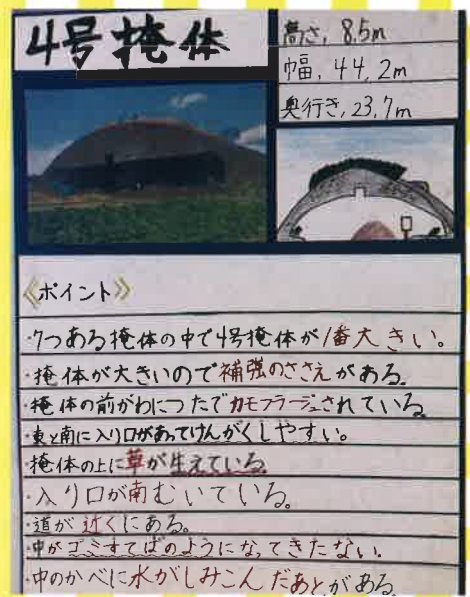 4号掩体
高さ, 8.5m
幅, 44,2m
奥行き, 23.7m
《ポイント》
・7つある掩体の中で4号掩体が1番大きい。
・掩体が大きいので補強のささえがある。
・掩体の前がわにつたでカモフラージュされている。
・東と南に入り口があってけんがくしやすい。
・掩体の上に草が生えている。
・入り口が南むいている。
・道が近くにある。
・中がゴミすてばのようになってきたない。
・中のかべに水がしみこんだあとがある。